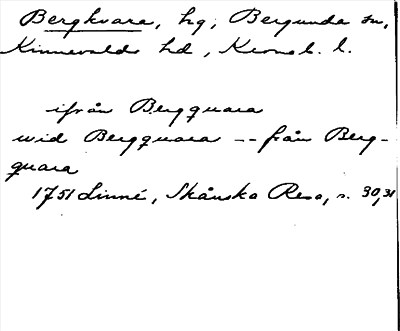 Bergkvara, hg, Bergunda sn,
Kinnevalds hd, Kronob. l.
ifrån Bergquara
wid Bergquara -- från Berg-
quara
1751 Linné, Skånska Resa, s. 30,31